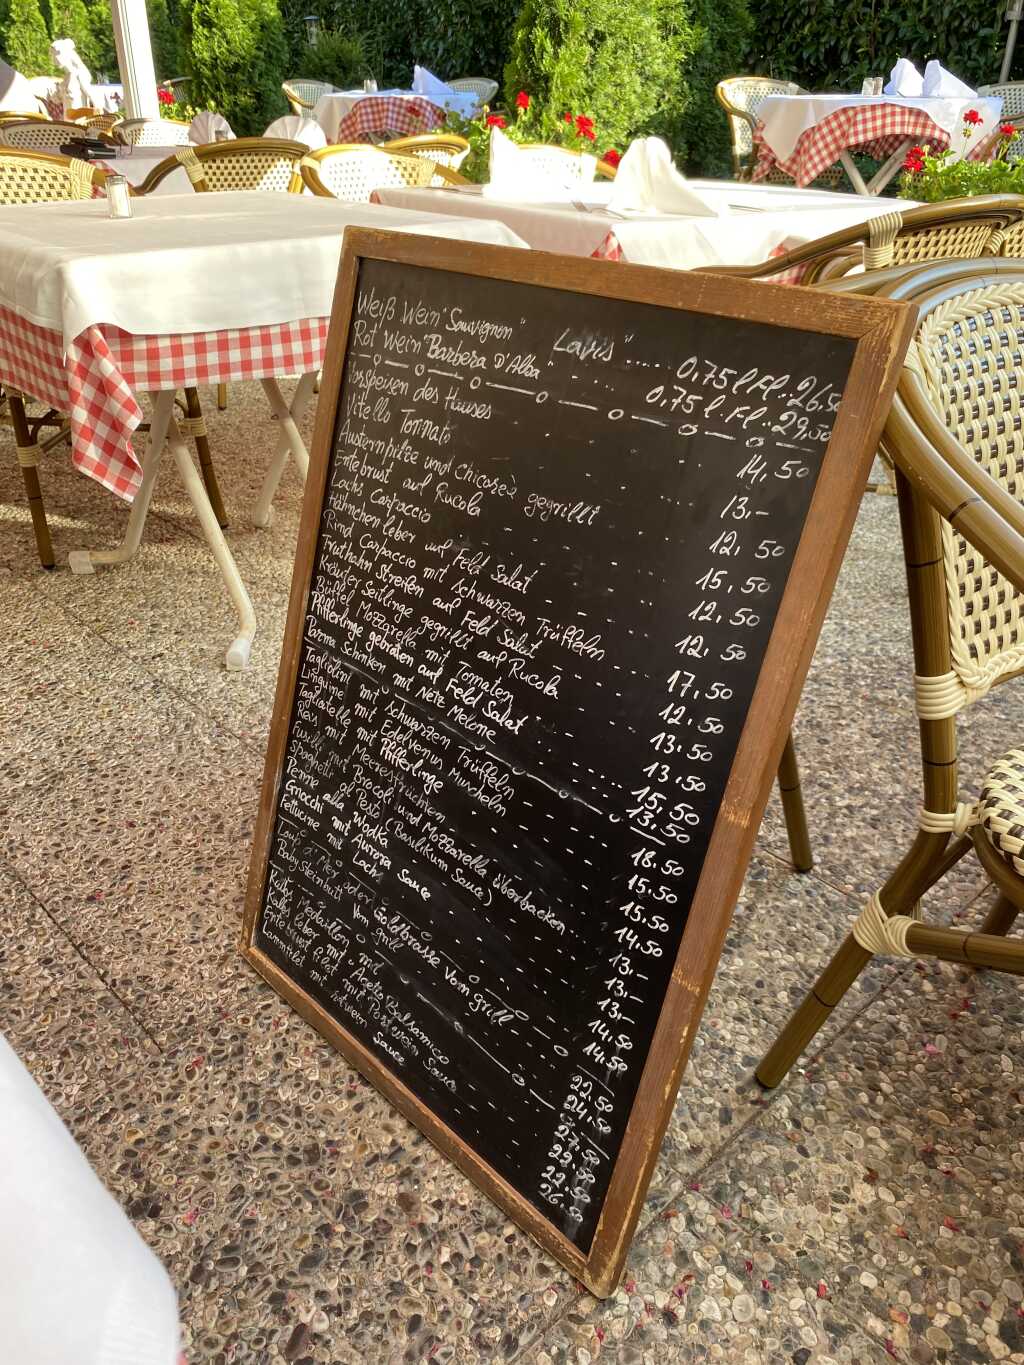 Weiß Wein "Sauvignon" Lapis" ..... 0,75 l Fl.. 26,50
Rot Wein "Barbera D'Alba" .... 0,75 l. Fl.. 29,50
Vorspeisen des Hauses 14,50
Vitello Tonnato 13,-
Austernpilze und Chicoreè gegrillt 12,50
Entebrust auf Rucola 15,50
Lachs Carpaccio 12,50
Hähnchenleber auf Feld Salat 12,50
Rind Carpaccio mit schwarzen Trüffeln 17,50
Truthahn Streifen auf Feld Salat 12,50
Kräuter Seitlinge gegrillt auf Rucola 13,50
Büffel Mozzarella mit Tomaten 13,50
Pfifferlinge gebraten auf Feld Salat 15,50
Parma Schinken mit Netz Melone 13,50
Tagliolini mit schwarzen Trüffeln 18,50
Linguine mit Edelvenus Muscheln 15,50
Tagliatelle mit Pfifferlinge 15,50
Reis mit Meeresfrüchten 14,50
Fusilli mit Brocoli und Mozzarella überbacken 13,-
Spaghetti al Pesto (Basilikum Sauce) 13,-
Penne alla Wodka 13,-
Gnocchi mit Aurora Sauce 14,50
Fettucine mit Lachs 14,50
oder Goldbrasse vom grill 22,50
Baby Steinbutt vom grill 24,50
Kalbs Medaillon mit 27,50
Kalbs leber mit Aceto Balsamico 22,50
Entebrust filet mit Portwein Sauce 22,50
Lammfilet mit rotwein Sauce 26,50